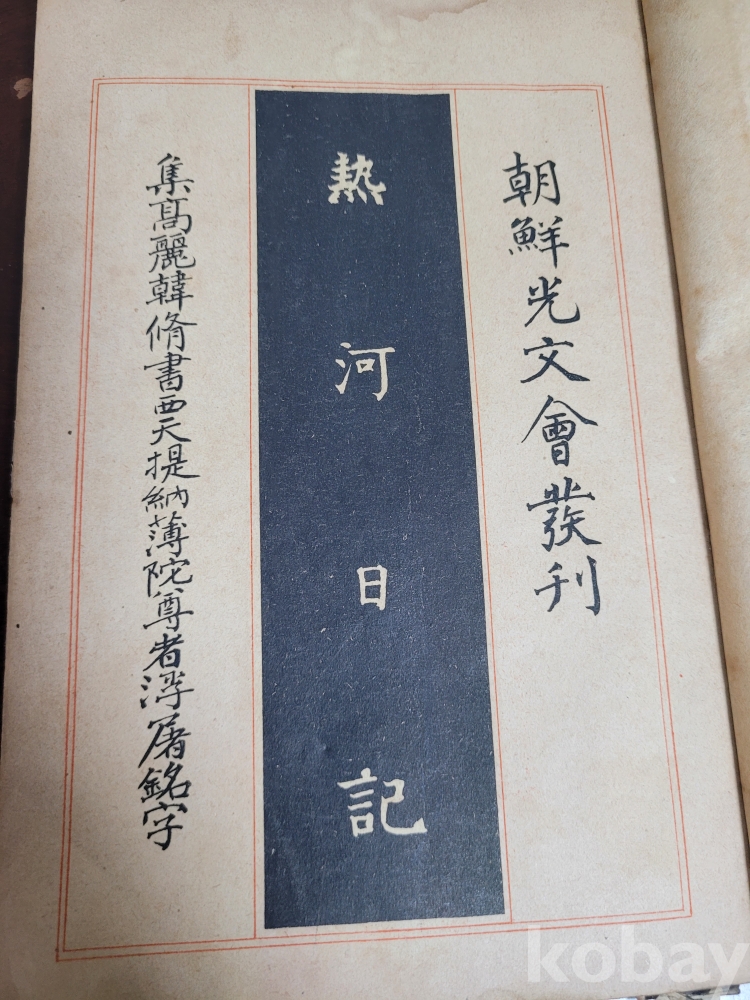 朝鮮光文會發刊
熱河日記
集高麗韓脩書西天提納薄陀尊者浮屠銘字
kobay